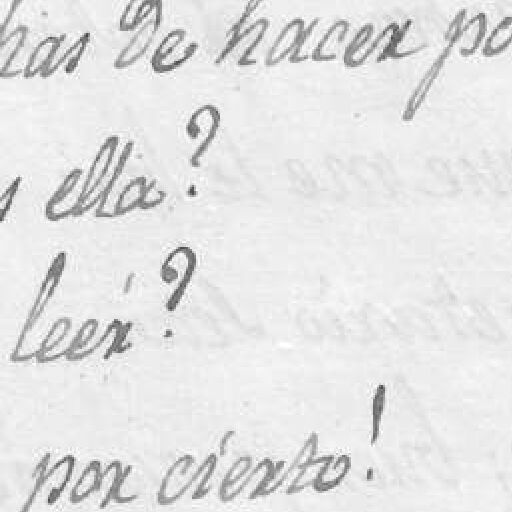 has de hacer po
s ella?
leér?
por cierto!